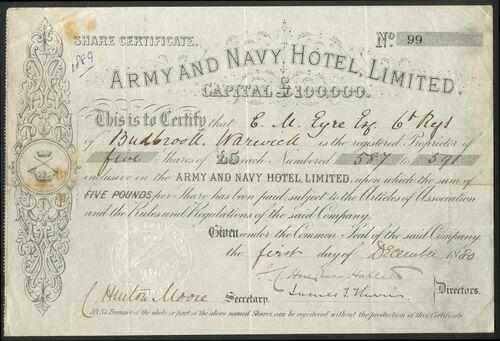 SHARE CERTIFICATE. No. 99
1889
ARMY AND NAVY HOTEL, LIMITED.
CAPITAL £100,000.
This is to Certify that E. M. Eyre Esq. 6th Regt
of Budbrook, Warwick is the registered Proprietor of
five Shares of £5 each Numbered 587 to 591
inclusive in the ARMY AND NAVY HOTEL, LIMITED, upon which the sum of
FIVE POUNDS per Share has been paid, subject to the Articles of Association
and the Rules and Regulations of the said Company.
Given under the Common Seal of the said Company
the first day of December 1880
Directors.
C. Hinton Moore Secretary.
N.B. No Transfer of the whole or part of the above named Shares can be registered without the production of this Certificate.